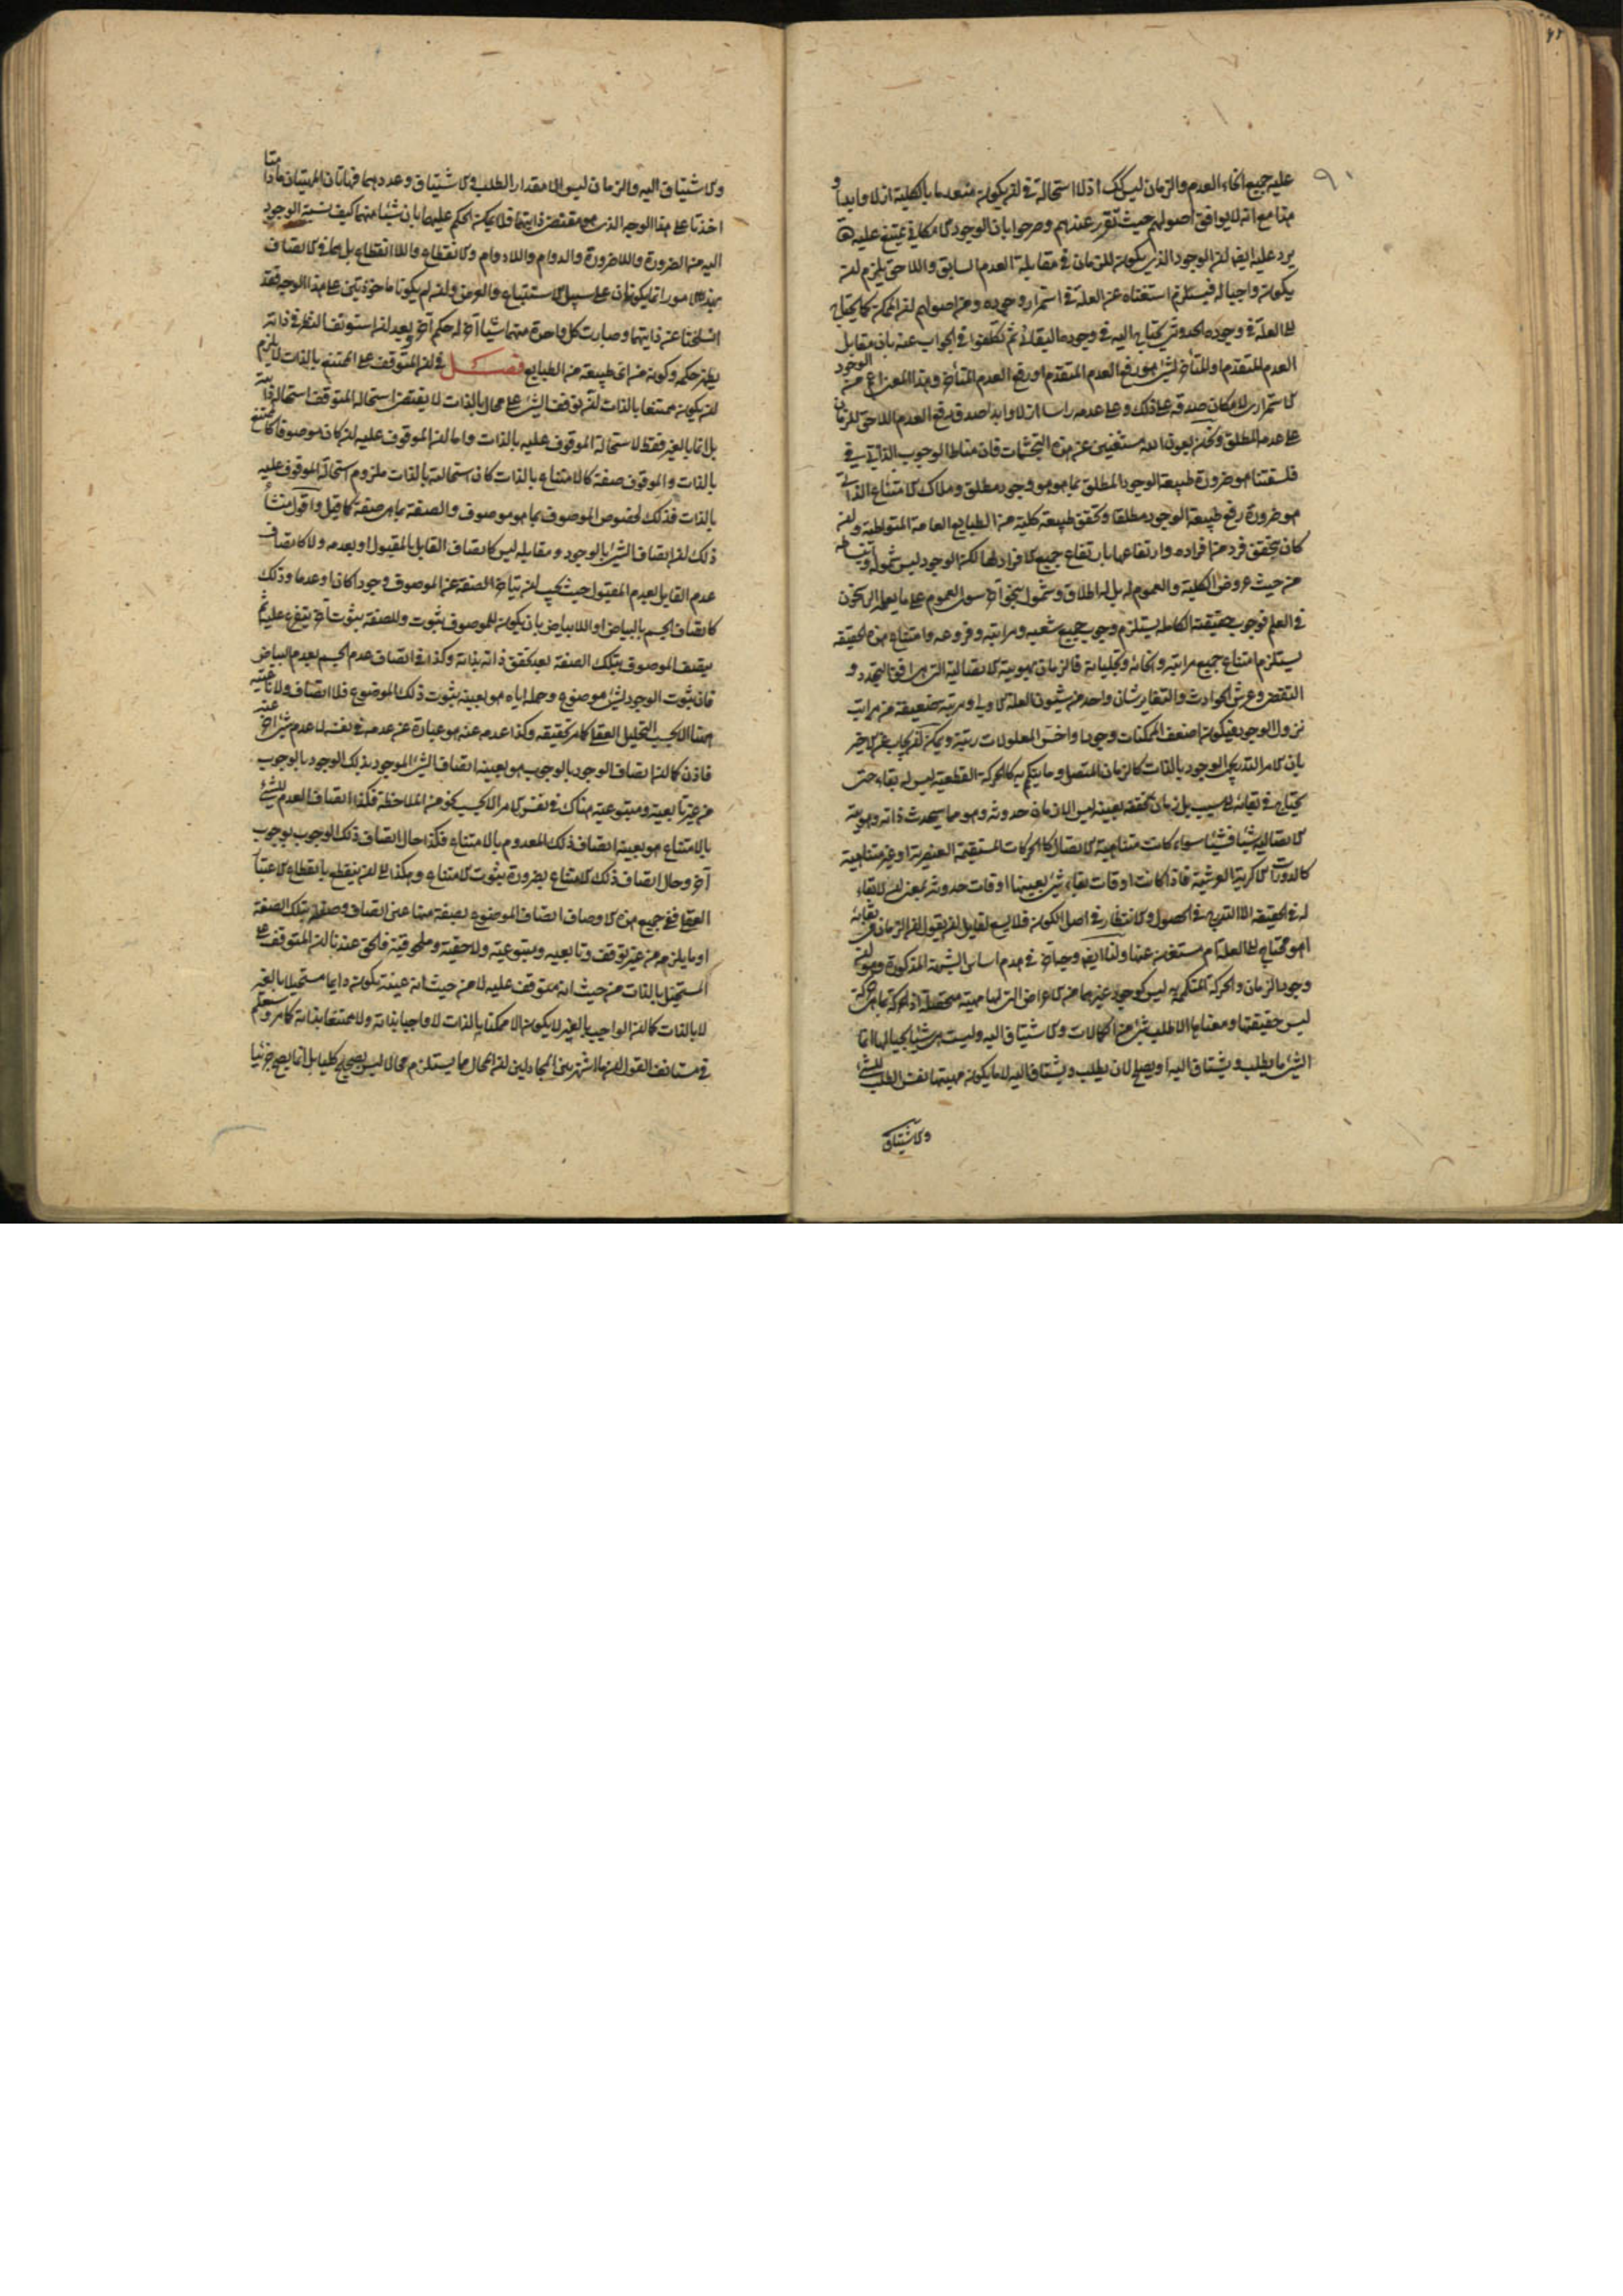 ٩٠
عليه جميع انحاء العدم والزمان ليس كك اذ لا استحالة في ان يكون منعدما بالكلية ازلا وابدا و
هذا مع انه لا يوافق اصولهم حيث تقرر عندهم وصرحوا بان الوجود الامكاني يمتنع عليه
يرد عليه ايضا ان الوجود الذي يكون للزمان في مقابلة العدم السابق واللاحق يلزم ان
يكون واجبا له فيستلزم استغناه عن العلة في استمرار وجوده ومن اصولهم ان الممكن كما يحتاج
الى العلة في وجوده الحدوثي يحتاج اليه في وجوده البقائي ثم تكلفوا في الجواب عنه بان مقابل
العدم المتقدم او المتاخر لشيء هو رفع العدم المتقدم او رفع العدم المتاخر وهذا المعنى اعم من الوجود
الاستمراري لامكان صدقه على ذلك وعلى عدمه راسا ازلا وابدا صدق رفع العدم اللاحق للزمان
على عدمه المطلق ونحن بعون الله مستغنين عن هذه التجشمات فان مناط الوجوب الذاتي في
فلسفتنا هو ضرورة طبيعة الوجود المطلق بما هو موجود مطلق وملاك الامتناع الذاتي
هو ضرورة رفع طبيعة الوجود مطلقا وتحقق طبيعة كلية من الطبايع العامة المتواطية وان
كان بتحقق فرد من افراده وارتفاعها بارتفاع جميع الافراد لها لكن الوجود ليس شموله وانبساطه
من حيث عروض الكلية والعموم له بل له اطلاق وشمول بنحو آخر سوى العموم على ما يعلمه الراسخون
في العلم فوجوب حقيقته الكاملة يستلزم وجوب جميع شعبه ومراتبه وفروعه وامتناع هذه الحقيقة
يستلزم امتناع جميع مراتبه وانحائه وتجلياته فالزمان بهويته الاتصالية التي هي افق التجدد و
التقضي وعرش الحوادث والتغاير شان واحد من شئون العلة الاولى ومرتبة ضعيفة من مراتب
نزول الوجود فيكون اضعف الممكنات وجودا واخس المعلولات رتبة ويمكن ان يجاب عن الاخير
بان الامر التدريجي الوجود بالذات كالزمان المتصل وما يتكمم به كالحركة القطعية ليس له بقاء حتى
يحتاج في بقائه الى سبب بل زمان تحققه بعينه ليس الا زمان حدوثه وهو مما سيحدث ذاته وهويته
الاتصالية شيئا فشيئا سواء كانت متناهية الاتصال كالحركات المستقيمة العنصرية او غير متناهية
كالدورات الاكرية العرشية فاذا كانت اوقات بقاء شيء بعينها اوقات حدوثه بمعنى ان لا بقاء
له في الحقيقة الا التدرج في الحصول والانتظار في اصل الكون فلا يسع لقايل ان يقول ان الزمان في بقائه
اهو محتاج الى العلة ام مستغن عنها ولنا ايضا وجها آخر في هدم اساس الشبهة المذكورة وهو ان
وجود الزمان والحركة المتكممة به ليس كوجود غيرهما من الاعراض التي لها مهية متحصلة اذ الحركة بما هي حركة
ليس حقيقتها ومعناها الا طلب شيء من الكمالات والاشتياق اليه وليست هي شيئا بحيالها انما
الشيء ما يطلب ويشتاق اليه او يصلح لان يطلب ويشتاق اليه لا ما يكون مهيتها نفس الطلب للشيء
والاشتياق
والاشتياق اليه والزمان ليس الا مقدار الطلب والاشتياق وعددهما فهاتان المهيتان ما دامتا
اخذتا على هذا الوجه الذي هو مقتضى ذاتيهما فلا يمكن الحكم عليهما بان شيئا منهما كيف نسبة الوجود
اليه من الضرورة واللاضرورة والدوام واللادوام والانقطاع واللاانقطاع بل هما في الاتصاف
بهذه الامور انما يكونان على سبيل الاستتباع والعرض وان لم يكونا ماخوذتين على هذا الوجه فقد
انسلختا عن ذاتيهما وصارت كل واحدة منهما شيئا آخر له حكم آخر بعد ان استونف النظر في ذاته
يظهر حكمه وكونه من اي طبيعة من الطبايع فصل في ان المتوقف على الممتنع بالذات لا يلزم
ان يكون ممتنعا بالذات ان توقف الشيء على محال بالذات لا يقتضي استحالة المتوقف استحالة ذاتية
بل انما بالغير فقط لاستحالة الموقوف عليه بالذات واما ان الموقوف عليه ان كان موصوفا كالممتنع
بالذات والموقوف صفة كالامتناع بالذات كان استحالته بالذات ملزوم استحالة الموقوف عليه
بالذات فذلك لخصوص الموصوف بما هو موصوف والصفة بما هي صفة كما قيل واقول منشا
ذلك ان اتصاف الشيء بالوجود ومقابله ليس كاتصاف القابل بالمقبول او بعدمه ولا كاتصاف
عدم القابل بعدم المقبول حيث يجب ان يتاخر الصفة عن الموصوف وجودا كان او عدما وذلك
كاتصاف الجسم بالبياض او اللابياض بان يكون للموصوف ثبوت وللصفة ثبوت آخر يتفرع عليه ثم
يتصف الموصوف بتلك الصفة بعد تحقق ذاته بذاته وكذا في اتصاف عدم الجسم بعدم البياض
فان ثبوت الوجود لشيء موضوع وحمله اياه هو بعينه ثبوت ذلك الموضوع فلا اتصاف ولا تابعية
هنا الا بحسب التحليل العقلي كامر تحقيقه وكذا عدمه عنه هو عبارة عن عدمه في نفسه لا عدم شيء آخر عنه
فاذن كما ان اتصاف الوجود بالوجوب هو بعينه اتصاف الشيء الموجود بذلك الوجود بالوجوب
من غير تابعية ومتبوعية هناك في نفس الامر الا بحسب نحو من الملاحظة فكذا اتصاف العدم للشيء
بالامتناع هو بعينه اتصاف ذلك المعدوم بالامتناع فكذا حال اتصاف ذلك الوجوب بوجوب
آخر وحال اتصاف ذلك الامتناع بضرورة ثبوت الامتناع وهكذا الى ان ينقطع بانقطاع الاعتبار
العقلي ففي جميع هذه الاوصاف اتصاف الموضوع بصفة منها عين اتصاف وصفه بتلك الصفة
او ما يلزمه من غير توقف وتابعية ومتبوعية ولاحقية وملحوقية فالحق عندنا ان المتوقف على
المستحيل بالذات من حيث انه متوقف عليه لا من حيث انه عينه يكون دايما مستحيلا بالغير
لا بالذات كما ان الواجب بالغير لا يكون الا ممكنا بالذات لا واجبا بذاته ولا ممتنعا بذاته كما مر وستعلم
في مستانف القول ان ما اشتهر بين المجادلين ان المحال مما يستلزم محالا ليس بصحيح كليا بل انما يصح جزئيا